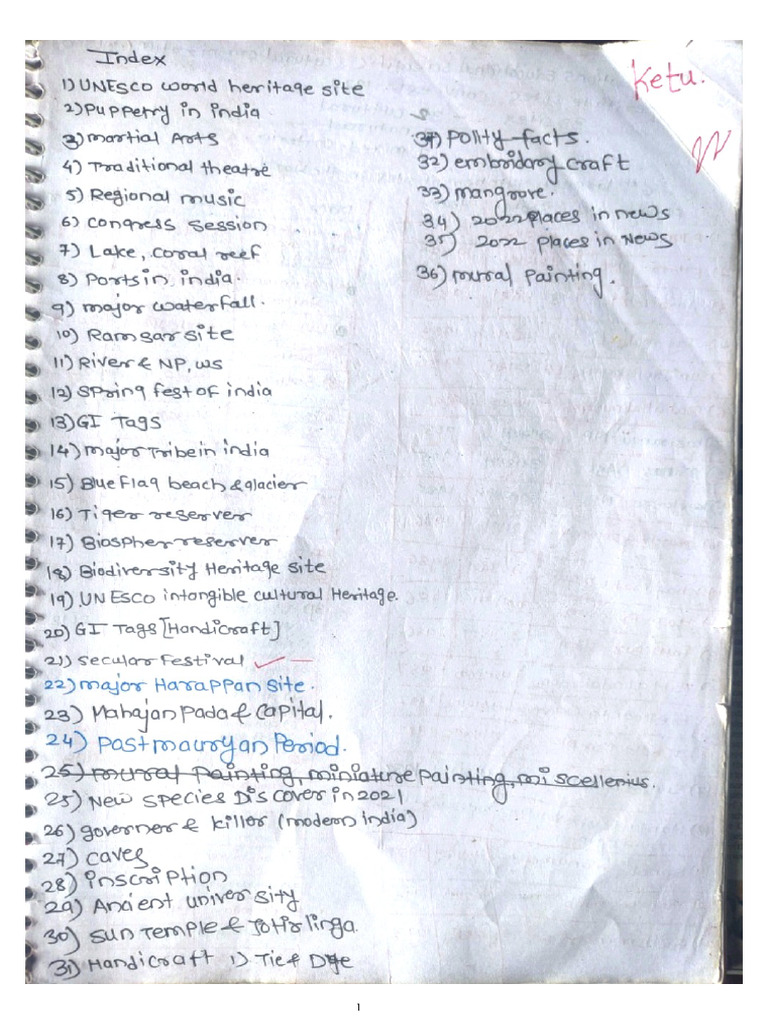 Index
Ketu.
1) UNESCO world heritage site
2) Puppetry in india
3) martial Arts
4) Traditional theatre
5) Regional music
6) Congress Session
7) Lake, coral reef
8) Ports in india.
9) major waterfall.
10) Ramsar site
11) River & NP, WS
12) Spring fest of india
13) GI Tags
14) major Tribe in india
15) Blue Flag beach & glacier
16) Tiger reserver
17) Biospher reserver
18) Biodiversity Heritage site
19) UNESCO intangible cultural Heritage.
20) GI Tags [Handicraft]
21) secular Festival
22) major Harappan site.
23) Mahajan Pada & Capital.
24) Post mauryan Period.
25) mural Painting, miniature painting, miscellenius.
25) New species Discover in 2021
26) governer & killer (modern india)
27) caves
28) inscription
29) Ancient university
30) Sun Temple & Jotirlinga.
31) Handicraft 1) Tie & Dye
31) Polity facts.
32) embroidary craft
33) mangrove.
34) 2022 places in news
35) 2022 places in News
36) mural Painting.
1